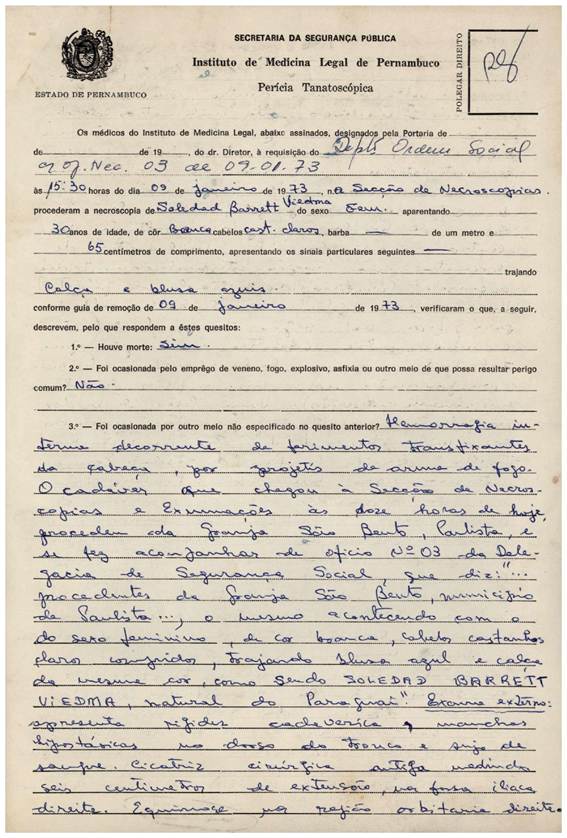 SECRETARIA DA SEGURANÇA PÚBLICA
Instituto de Medicina Legal de Pernambuco
Perícia Tanatoscópica
ESTADO DE PERNAMBUCO
POLEGAR DIREITO
Os médicos do Instituto de Medicina Legal, abaixo assinados, designados pela Portaria de
de de 19 , do dr. Diretor, à requisição do Deptº Ordem Social
of. Nec. 03 de 09.01.73
às 15:30 horas do dia 09 de janeiro de 1973, na Secção de Necroscopias.
procederam a necroscopia de Soledad Barrett Viedma do sexo Fem. aparentando
30 anos de idade, de côr branca cabelos cast. claros, barba — de um metro e
65 centímetros de comprimento, apresentando os sinais particulares seguintes —
trajando
Calça e blusa azuis
conforme guia de remoção de 09 de janeiro de 1973, verificaram o que, a seguir,
descrevem, pelo que respondem a êstes quesitos:
1.º — Houve morte: Sim.
2.º — Foi ocasionada pelo emprêgo de veneno, fogo, explosivo, asfixia ou outro meio de que possa resultar perigo
comum? Não.
3.º — Foi ocasionada por outro meio não especificado no quesito anterior? Hemorragia in-
terna decorrente de ferimentos transfixantes
da cabeça, por projetis de arma de fogo.
O cadáver que chegou à Secção de Necros-
copias e Exumações às doze horas de hoje,
procedem da Granja São Bento, Paulista, e
se fez acompanhar de ofício Nº 03 da Dele-
gacia de Segurança Social, que diz: "...
procedentes da Granja São Bento, município
de Paulista..., o mesmo acontecendo com o
do sexo feminino, de cor branca, cabelos castanhos
claros compridos, trajando blusa azul e calça
da mesma cor, como sendo SOLEDAD BARRÉTT
VIEDMA, natural do Paraguai". Exame externo:
apresenta rigidez cadavérica, manchas
hipostásicas no dorso do tronco e suja de
sangue. Cicatriz cirúrgica antiga medindo
seis centimetros de extensão, na fossa ilíaca
direita. Equimose na região orbitaria direita.